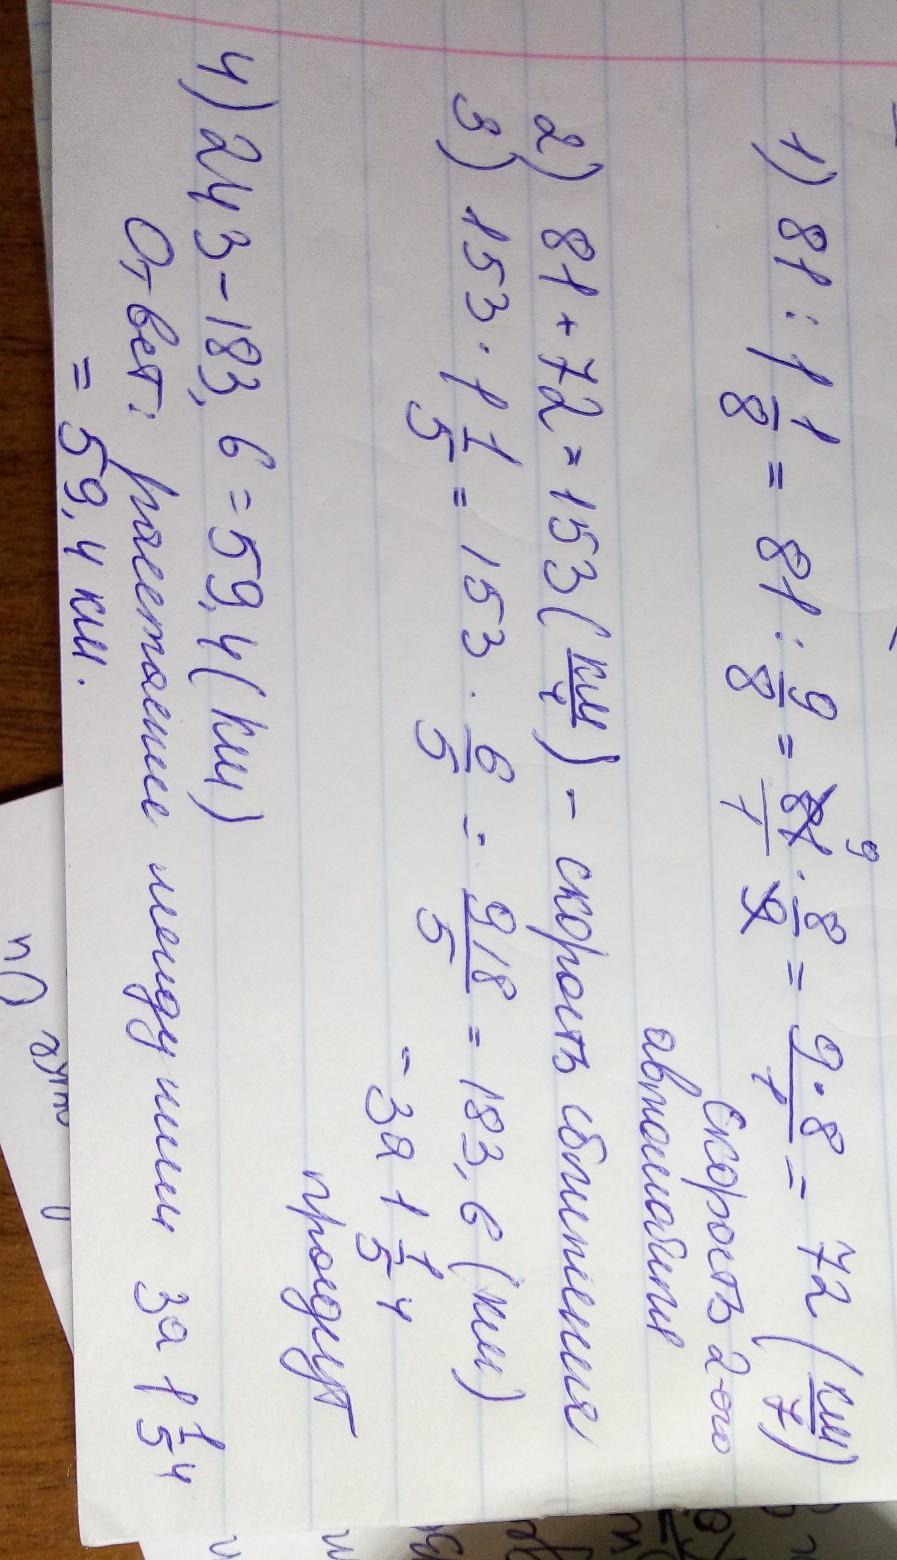 1) 81 : 1 1/8 = 81 : 9/8 = 81/1 · 8/9 = 9·8/1 = 72 (км/ч)
Скорость 2-ого
автомобиля
2) 81 + 72 = 153 (км/ч) - скорость сближения
3) 153 · 1 1/5 = 153 · 6/5 = 918/5 = 183,6 (км)
- за 1 1/5 ч
пройдут
4) 243 - 183,6 = 59,4 (км)
Ответ: расстояние между ними за 1 1/5 ч
= 59,4 км.